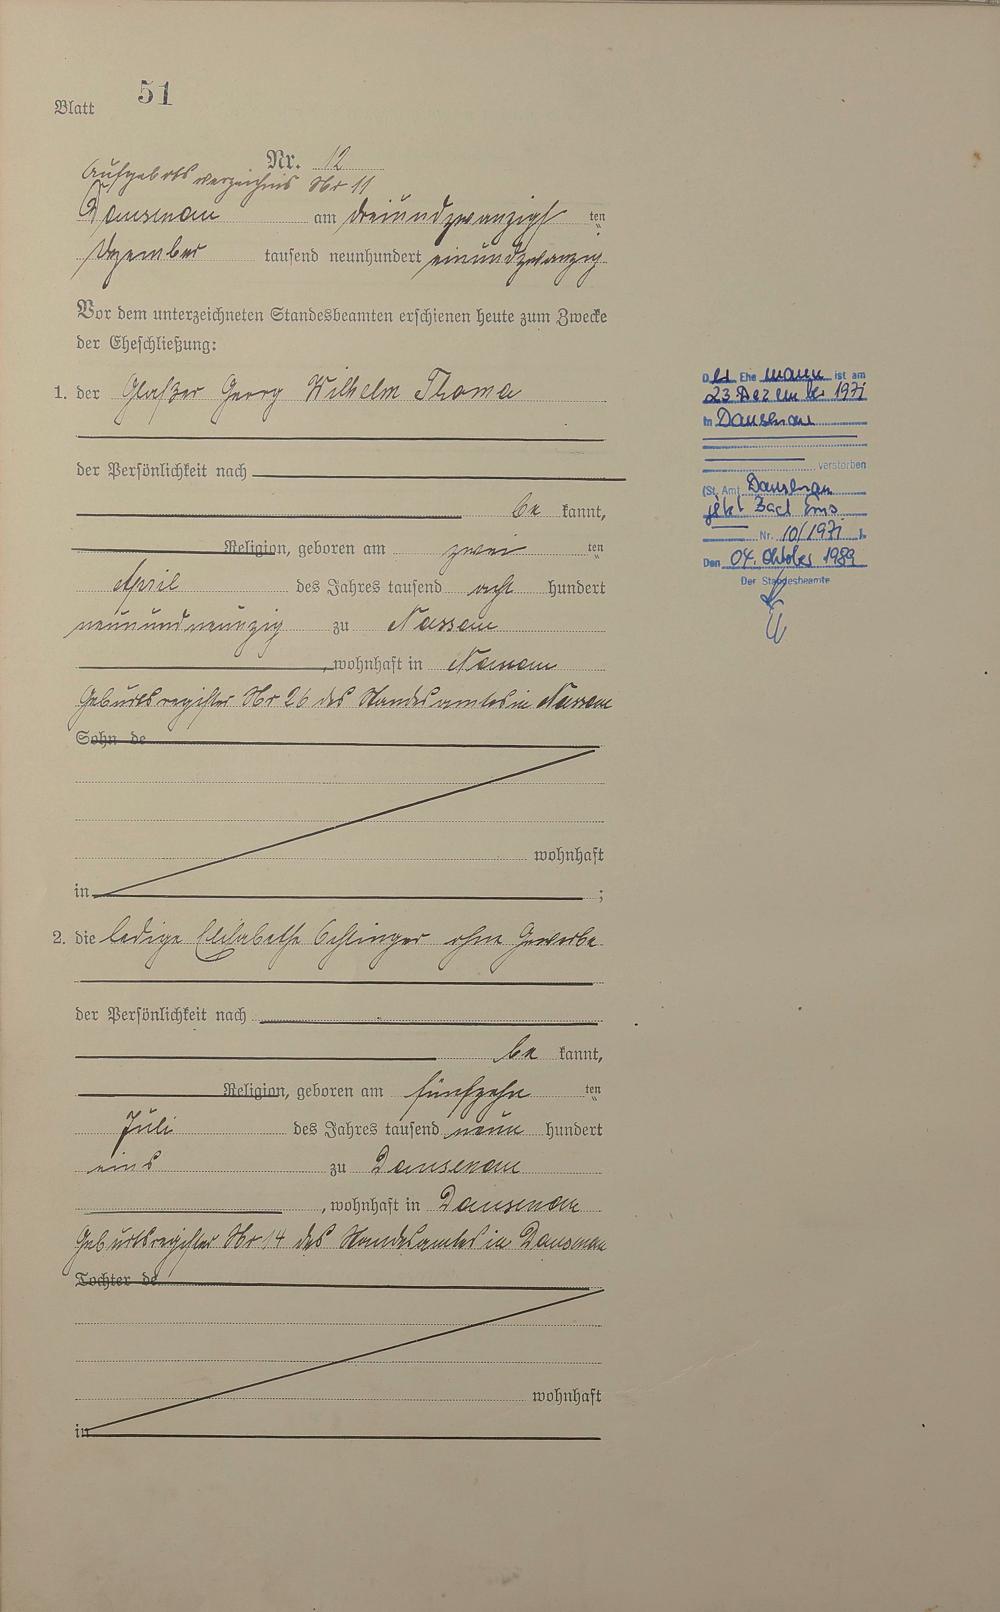 Blatt 51
Nr. 12
Aufgebotsverzeichnis Nr 11
Dausenau am dreiundzwanzigsten
Dezember tausend neunhundert einundzwanzig
Vor dem unterzeichneten Standesbeamten erschienen heute zum Zwecke
der Eheschließung:
1. der Georg Wilhelm Thoma
der Persönlichkeit nach
be kannt,
Religion, geboren am zwei ten
April des Jahres tausend acht hundert
neunundneunzig zu Nassau
, wohnhaft in Nassau
Geburtsregister Nr 26 des Standesamtes in Nassau
Sohn de
wohnhaft
in ;
2. die ledige Elisabethe ohne Gewerbe
der Persönlichkeit nach
be kannt,
Religion, geboren am fünfzehn ten
Juli des Jahres tausend neun hundert
eins zu Dausenau
, wohnhaft in Dausenau
Geburtsregister Nr 14 des Standesamtes in Dausenau
Tochter de
wohnhaft
in
Der Ehe mann ist am
23 Dezember 1971
in Dausenau
verstorben
(St. Amt Dausenau
jetzt Bad Ems
Nr. 10/1971 ).
Den 04. Oktober 1989
Der Standesbeamte